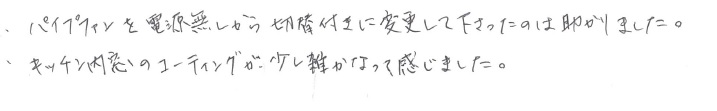 ・パイプファンを電源無しから切替付きに変更して下さったのは助かりました。
・キッチン内窓のコーティングが少し雑かなって感じました。